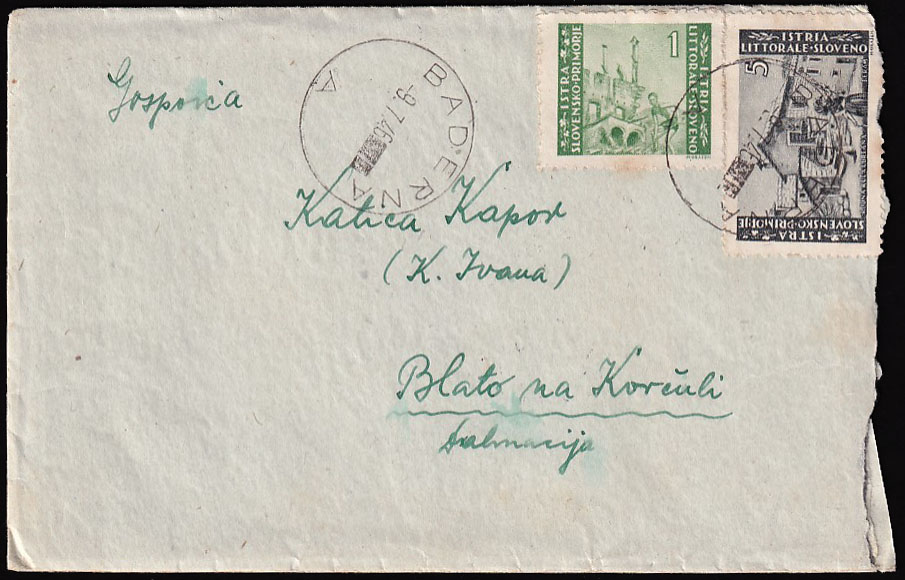 Gospođica
BADERNA
-9.7.46
A
1
ISTRA
SLOVENSKO-PRIMORJE
ISTRIA
LITTORALE-SLOVENO
ISTRIA
LITTORALE-SLOVENO
5
ISTRA
SLOVENSKO-PRIMORJE
Katica Kapor
(K. Ivana)
Blato na Korčuli
Dalmacija